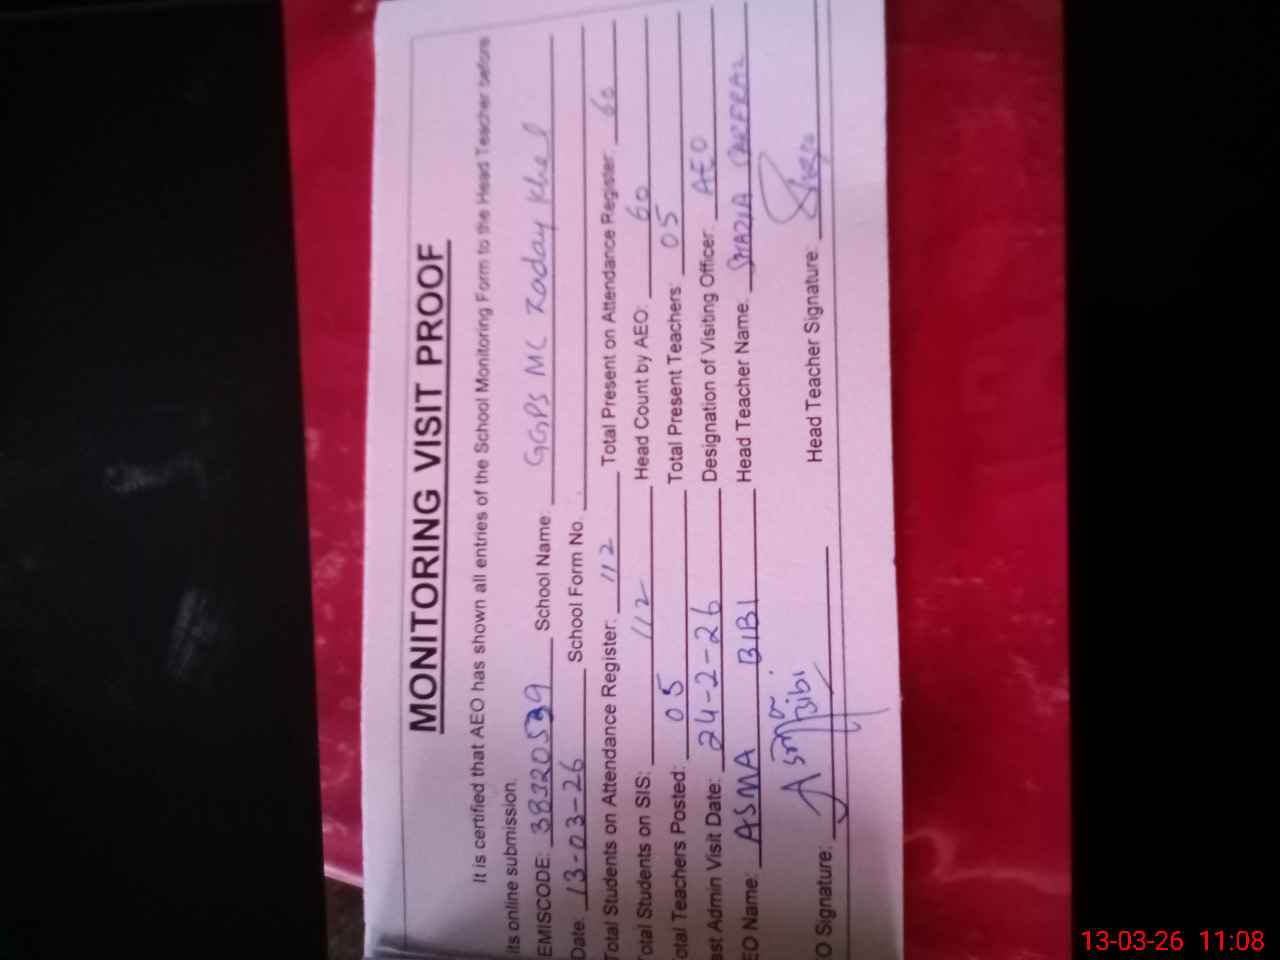 MONITORING VISIT PROOF
It is certified that AEO has shown all entries of the School Monitoring Form to the Head Teacher before
its online submission.
EMISCODE: 38320539 School Name: GGPS MC Zaday Khel
Date: 13-03-26 School Form No.
Total Students on Attendance Register: 112 Total Present on Attendance Register: 60
otal Students on SIS: 112 Head Count by AEO: 60
otal Teachers Posted: 05 Total Present Teachers: 05
ast Admin Visit Date: 24-2-26 Designation of Visiting Officer: AEO
EO Name: ASMA BIBI Head Teacher Name: SHAZIA SARFRAZ
O Signature: Asma Bibi Head Teacher Signature:
13-03-26 11:08